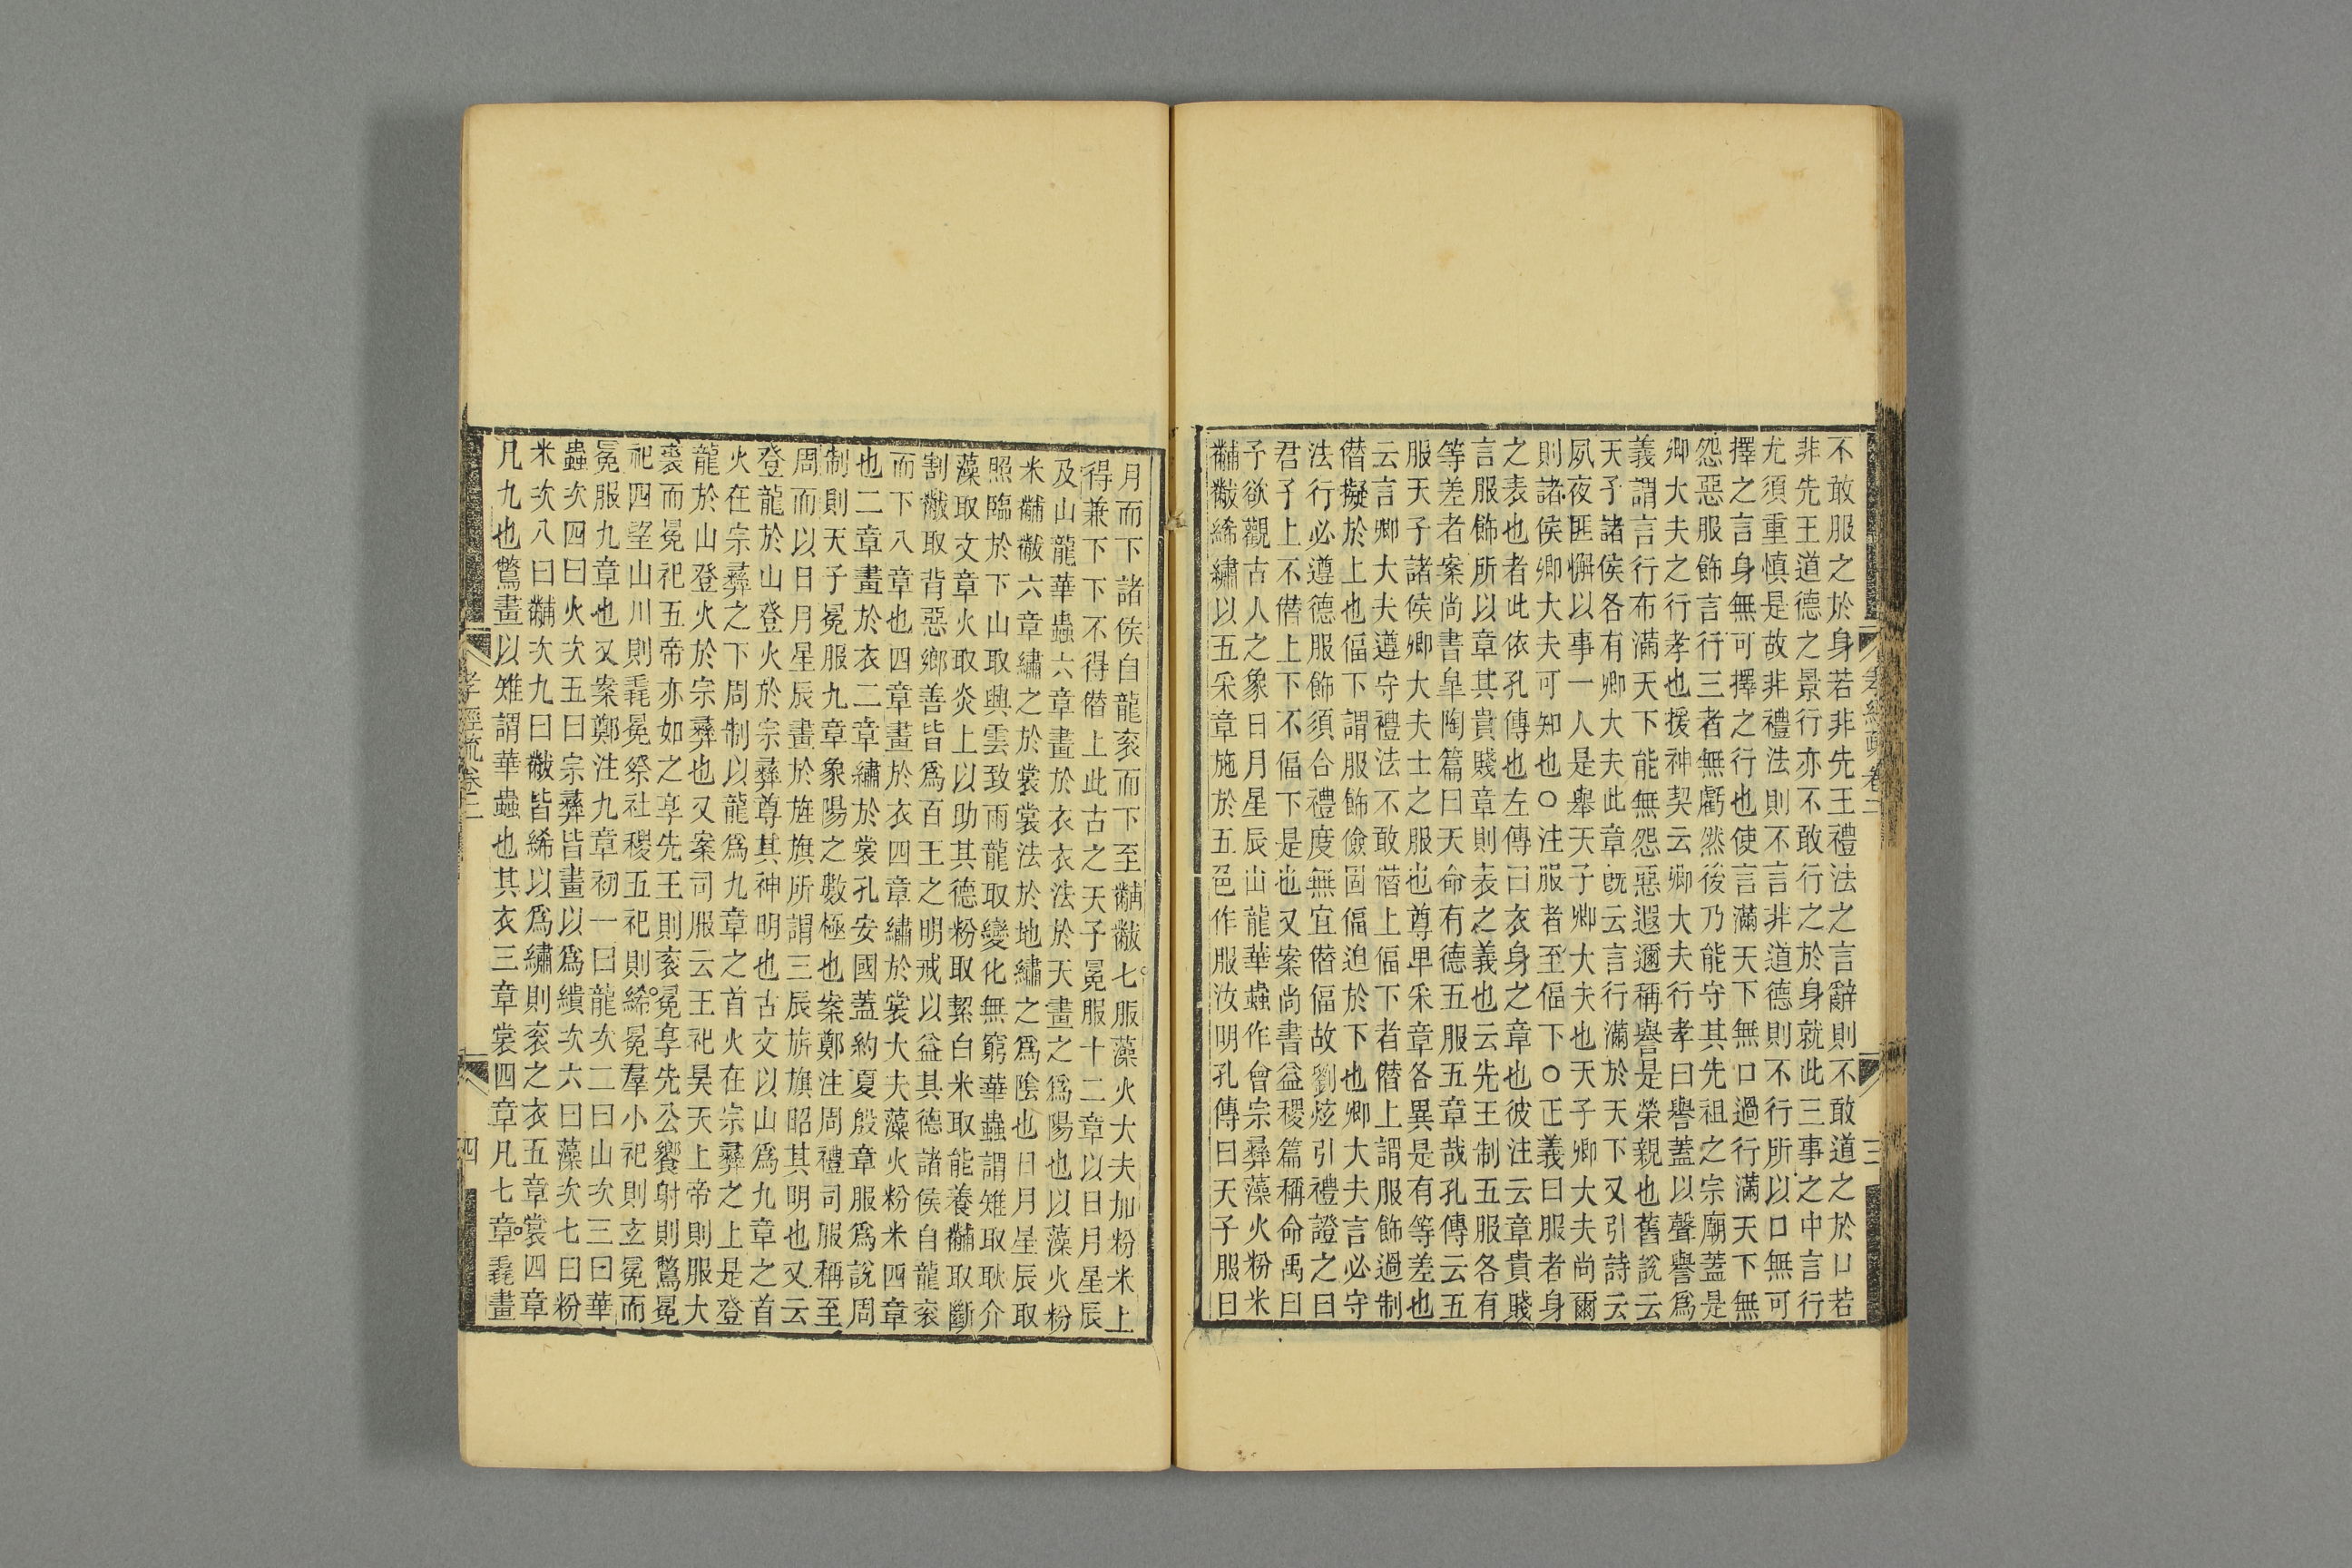 不敢服之於身若非先王禮法之言辭則不敢道之於口若
非先王道德之景行亦不敢行之於身就此三事之中言行
尤須重慎是故非禮法則不言非道德則不行所以口無可
擇之言身無可擇之行也使言滿天下無口過行滿天下無
怨惡服飾言行三者無虧然後乃能守其先祖之宗廟蓋是
卿大夫之行孝也援神契云卿大夫行孝曰譽蓋以聲譽爲
義謂言行布滿天下能無怨惡遐邇稱譽是榮親也舊說云
天子諸侯各有卿大夫此章旣云言行滿於天下又引詩云
夙夜匪懈以事一人是舉天子卿大夫也天子卿大夫尚爾
則諸侯卿大夫可知也○注服者至偪下○正義曰服者身
之表也者此依孔傳也左傳曰衣身之章也彼注云章貴賤
言服飾所以章其貴賤章則表之義也云先王制五服各有
等差者案尚書皐陶篇曰天命有德五服五章哉孔傳云五
服天子諸侯卿大夫士之服也尊卑采章各異是有等差也
云言卿大夫遵守禮法不敢僭上偪下者僭上謂服飾過制
僭擬於上也偪下謂服飾儉固偪迫於下也卿大夫言必守
法行必遵德服飾須合禮度無宜僭偪故劉炫引禮證之曰
君子上不僭上下不偪下是也又案尚書益稷篇稱命禹曰
予欲觀古人之象日月星辰山龍華蟲作會宗彝藻火粉米
黼黻絺繡以五采章施於五色作服汝明孔傳曰天子服日
月而下諸侯自龍衮而下至黼黻七服藻火大夫加粉米上
得兼下下不得僭上此古之天子冕服十二章以日月星辰
及山龍華蟲六章畫於衣衣法於天畫之爲陽也以藻火粉
米黼黻六章繡之於裳裳法於地繡之爲陰也日月星辰取
照臨於下山取興雲致雨龍取變化無窮華蟲謂雉取耿介
藻取文章火取炎上以助其德粉取絜白米取能養黼取斷
割黻取背惡鄉善皆爲百王之明戒以益其德諸侯自龍衮
而下八章也四章畫於衣四章繡於裳大夫藻火粉米四章
也二章畫於衣二章繡於裳孔安國蓋約夏殷章服爲說周
制則天子冕服九章象陽之數極也案鄭注周禮司服稱至
周而以日月星辰畫於旌旗所謂三辰旂旗昭其明也又云
登龍於山登火於宗彝尊其神明也古文以山爲九章之首
火在宗彝之下周制以龍爲九章之首火在宗彝之上是登
龍於山登火於宗彝也又案司服云王祀昊天上帝則服大
裘而冕祀五帝亦如之享先王則衮冕享先公饗射則鷩冕
祀四望山川則毳冕祭社稷五祀則絺冕羣小祀則玄冕而
冕服九章也又案鄭注九章初一曰龍次二曰山次三曰華
蟲次四曰火次五曰宗彝皆畫以爲繢次六曰藻次七曰粉
米次八曰黼次九曰黻皆絺以爲繡則衮之衣五章裳四章
凡九也鷩畫以雉謂華蟲也其衣三章裳四章凡七章毳畫
孝經疏卷二
四